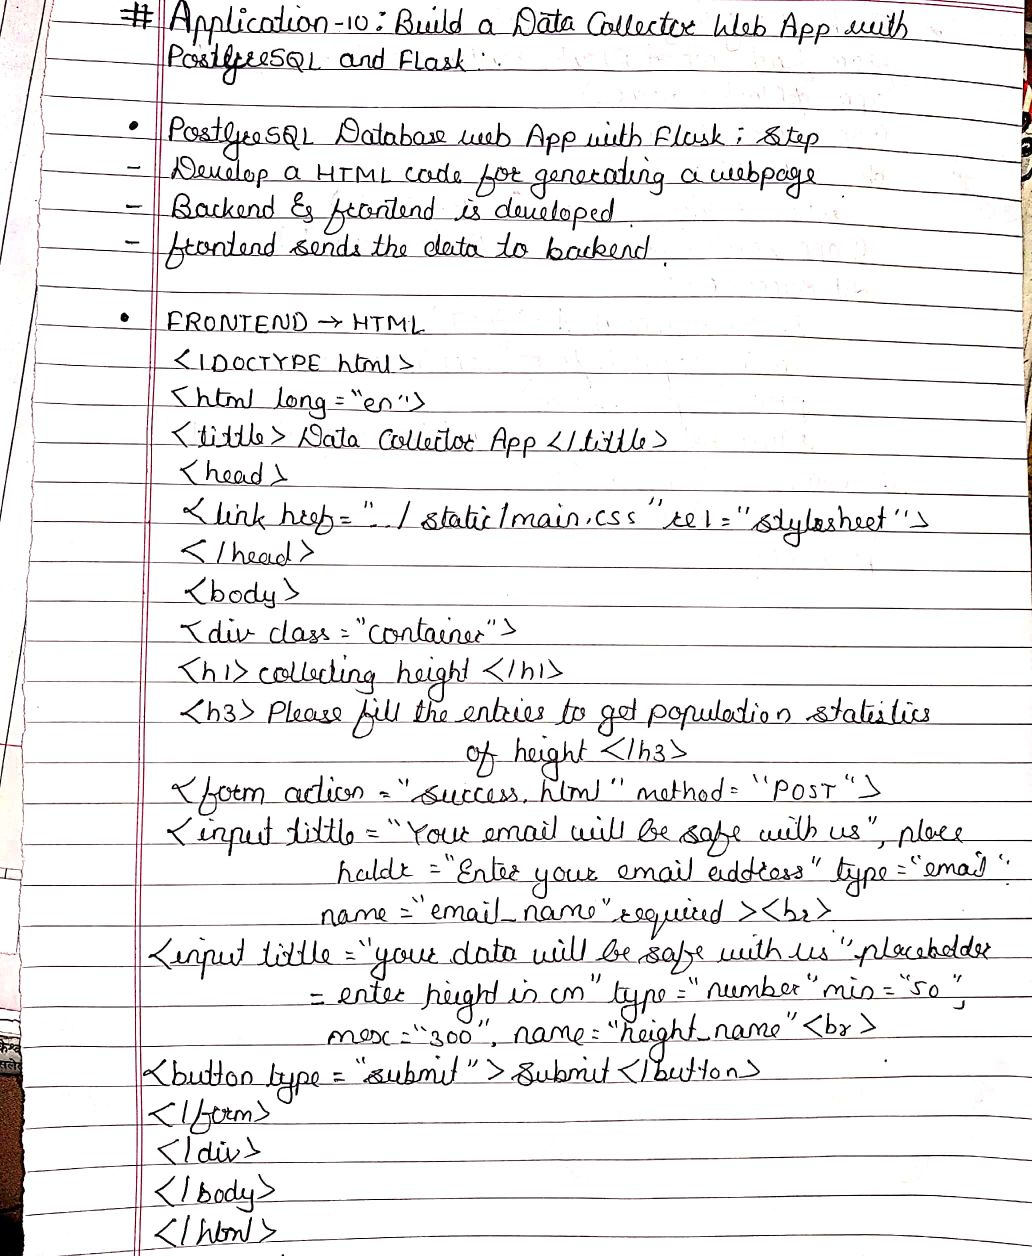 # Application-10: Build a Data Collector Web App with
PostgreSQL and Flask :
• PostgreSQL Database web App with Flask : Step
- Develop a HTML code for generating a webpage
- Backend & frontend is developed
- frontend sends the data to backend.
• FRONTEND → HTML
<!DOCTYPE html>
<html long="en">
<tittle> Data Collector App </tittle>
<head>
<link href="../static/main.css" rel="stylesheet">
</head>
<body>
<div class="container">
<h1> collecting height </h1>
<h3> Please fill the entries to get population statistics
of height </h3>
<form action="success.html" method="POST">
<input tittle="Your email will be safe with us", place
haldr="Enter your email address" type="email"
name="email_name" required ><br>
<input tittle="your data will be safe with us" placeholder
= enter height in cm" type="number" min="50",
max="300", name="height_name" <br>
<button type="submit"> Submit </button>
</form>
</div>
</body>
</html>